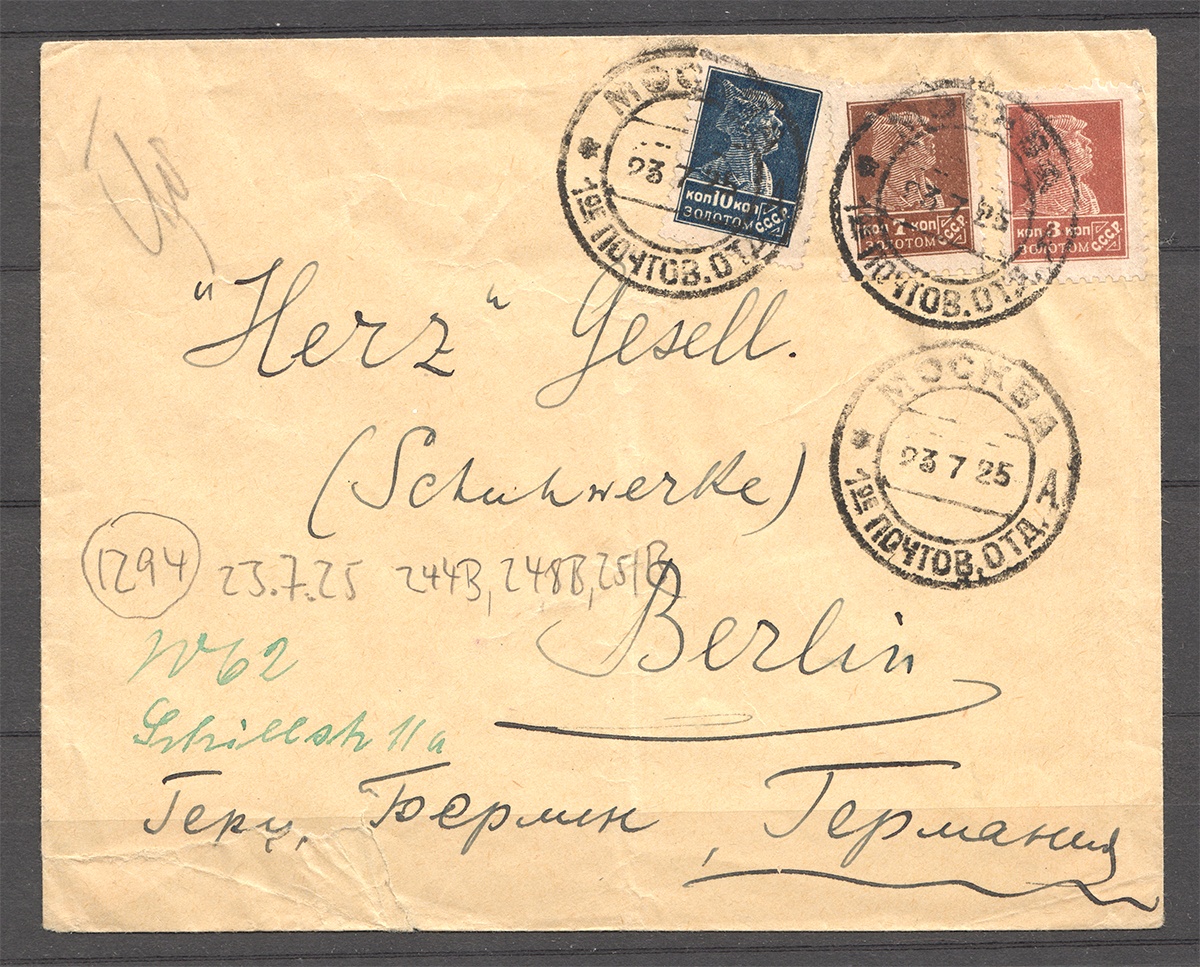 МОСК
23 7 25
1ое ПОЧТОВ. ОТД.
коп 10 коп
ЗОЛОТОМ С.С.С.Р.
МОСКВА
23 7 25
1ое ПОЧТОВ. ОТД.
коп 7 коп
ЗОЛОТОМ С.С.С.Р.
коп 3 коп
ЗОЛОТОМ С.С.С.Р.
"Herz" Gesell.
МОСКВА
23 7 25
1ое ПОЧТОВ. ОТД. А
(Schuhwerke)
1294 23.7.25 244B, 248B, 251B
Berlin
W62
Schillstr 11a
Герц, Берлин, Германия